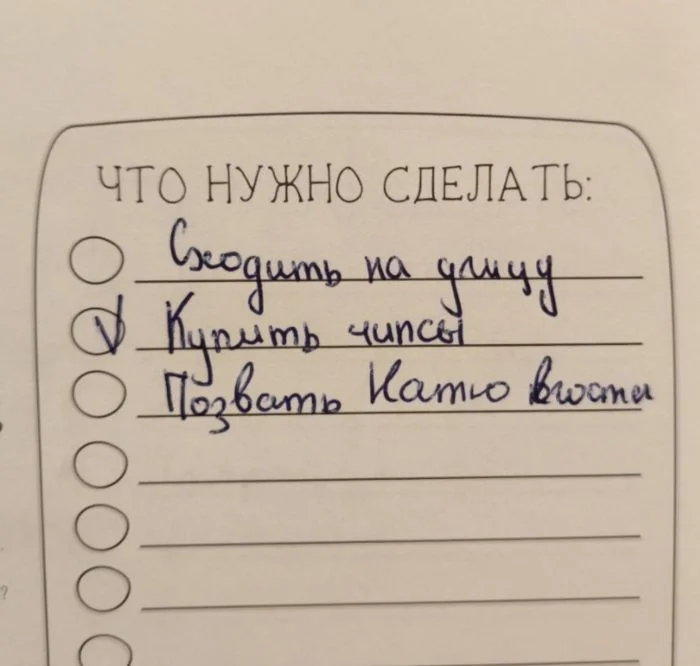 ЧТО НУЖНО СДЕЛАТЬ:
Сходить на улицу
Купить чипсы
Позвать Катю в гости